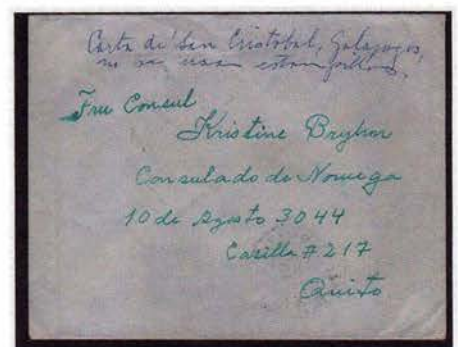 Carta de San Cristobal, Galapagos,
no se usan estampillas.
Fru Consul
Kristine
Consulado de Noruega
10 de Agosto 3044
Casilla # 217
Quito